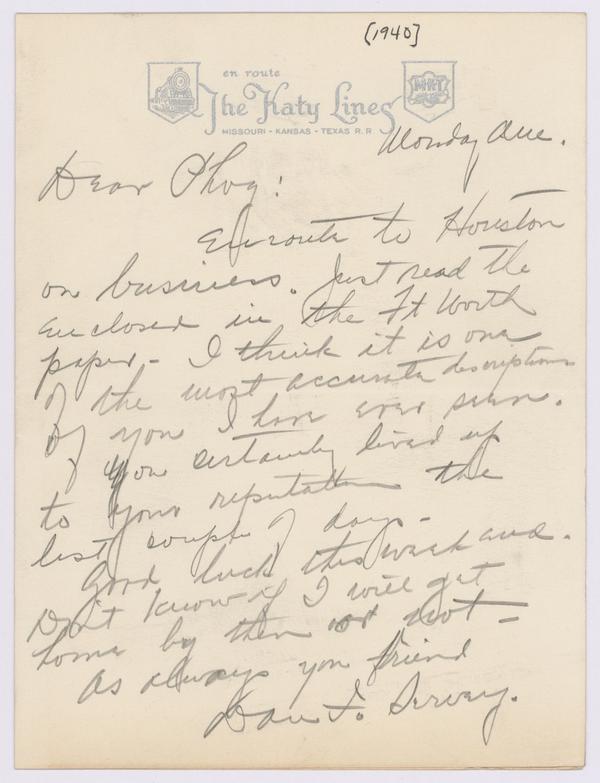 [1940]
en route
The Katy Lines
MISSOURI - KANSAS - TEXAS R. R.
MK&T
Monday Eve.
Dear Phog:
Enroute to Houston
on business. Just read the
enclosed in the Ft Worth
paper - I think it is one
of the most accurate descriptions
of you I have ever seen.
You certainly lived up
to your reputation the
last couple of days -
Good luck this week end.
Don't know if I will get
home by then or not -
As always you friend
Dan